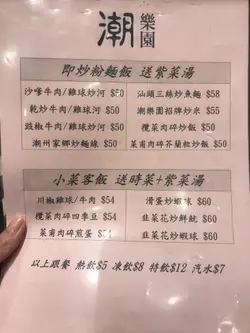 潮樂園
即炒粉麵飯 送紫菜湯
沙嗲牛肉/雞球炒河 $50
汕頭三絲炒魚麵 $58
乾炒牛肉/雞球河 $50
潮樂園招牌炒米 $55
豉椒牛肉/雞球炒河 $50
欖菜肉碎炒飯 $50
潮州家鄉炒麵線 $50
菜甫肉碎芥蘭粒炒飯 $50
小菜客飯 送時菜+紫菜湯
川椒雞球/牛肉 $54
滑蛋炒蝦球 $60
欖菜肉碎四季豆 $54
韭菜花炒鮮魷 $60
菜甫肉碎煎蛋 $54
韭菜花炒蝦球 $60
以上跟餐 熱飲$5 凍飲$8 特飲$12 汽水$7